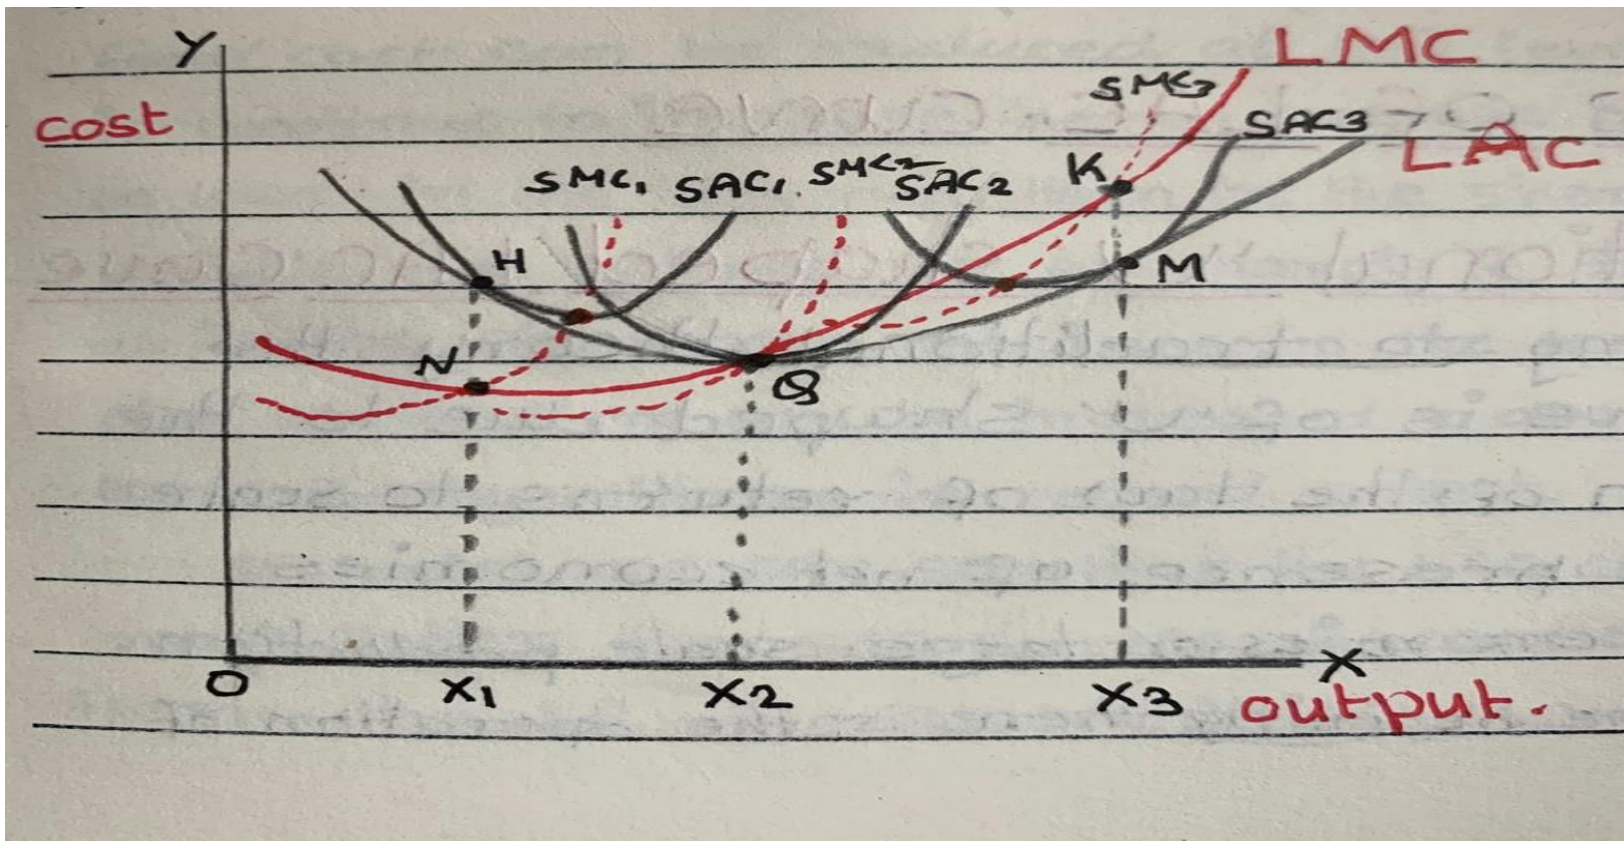 Y
LMC
cost
SMC3
SAC3
LAC
SMC1 SAC1 SMC2 SAC2
K
H
M
N
Q
O X1 X2 X3 X
output.